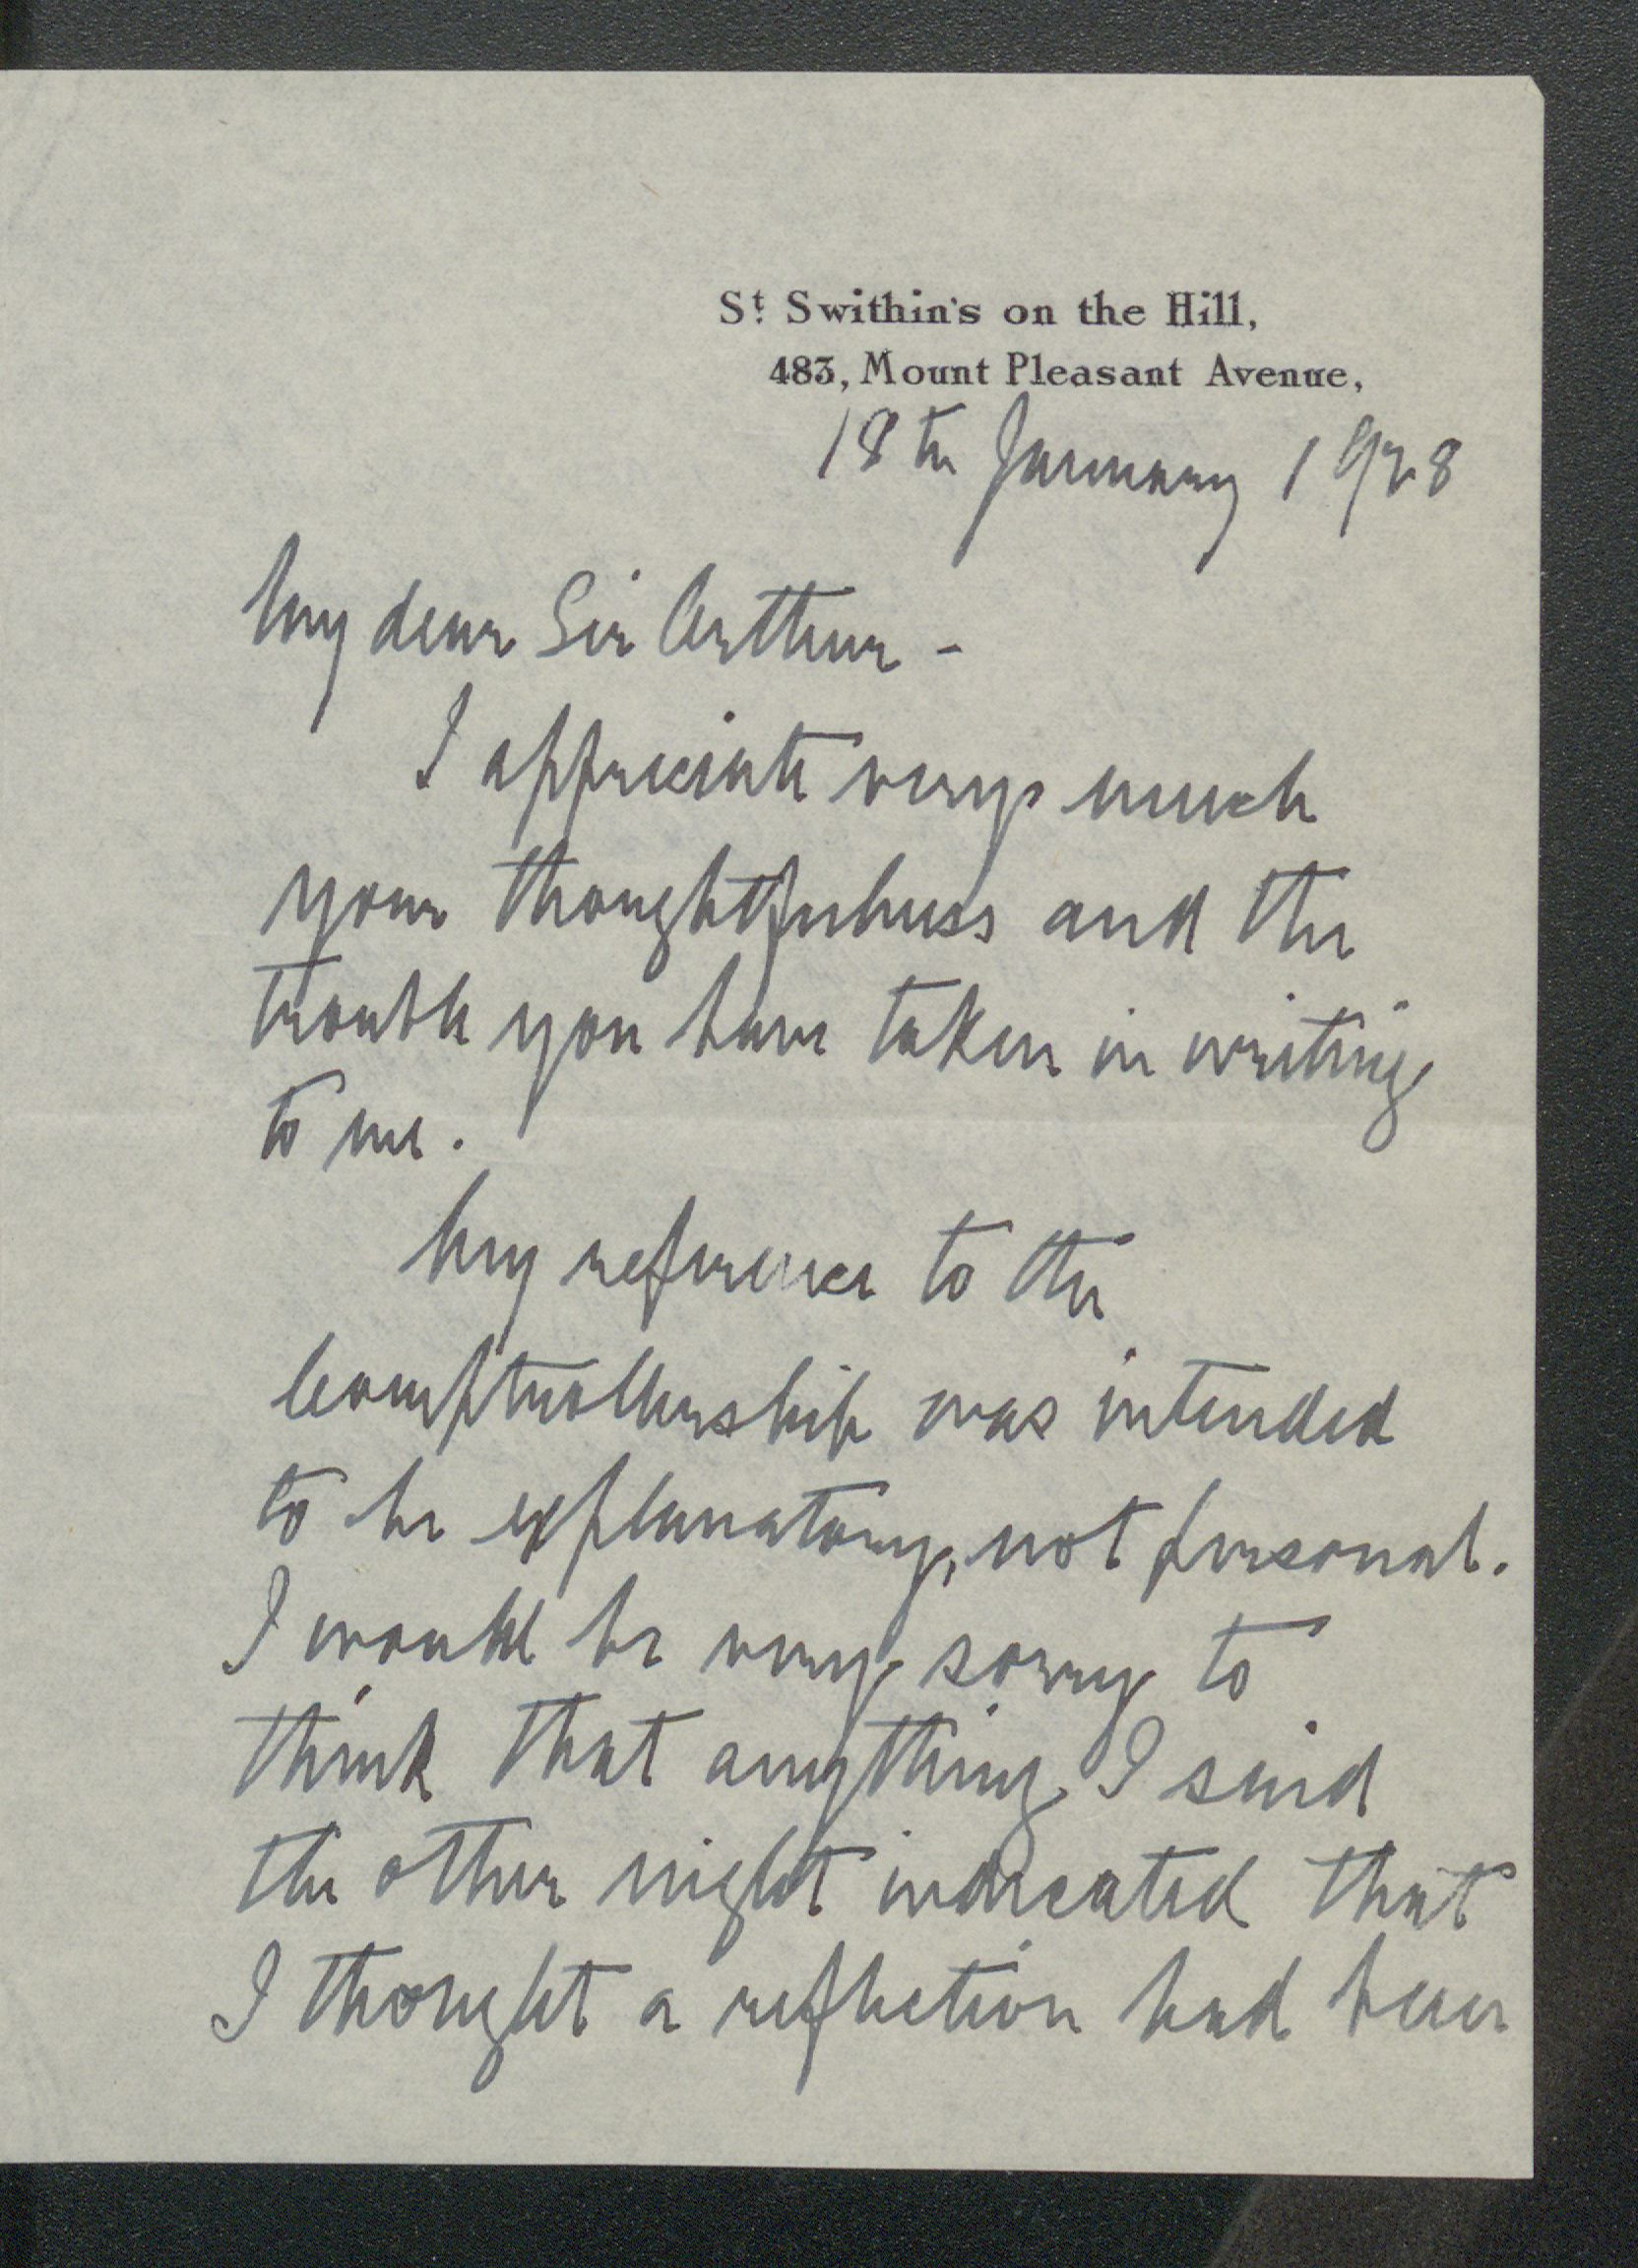 St. Swithin's on the Hill,
483, Mount Pleasant Avenue,
18th January 1928
My dear Sir Arthur -
I appreciate very much
your thoughtfulness and the
trouble you have taken in writing
to me.
My reference to the
Comptrollership was intended
to be explanatory, not personal.
I would be very sorry to
think that anything I said
the other night indicated that
I thought a reflection had been